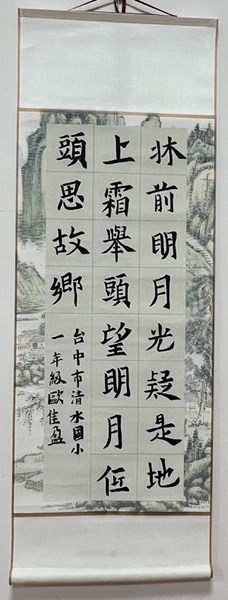 牀前明月光疑是地
上霜舉頭望明月低
頭思故鄉
台中市清水國小
一年級歐佳盈